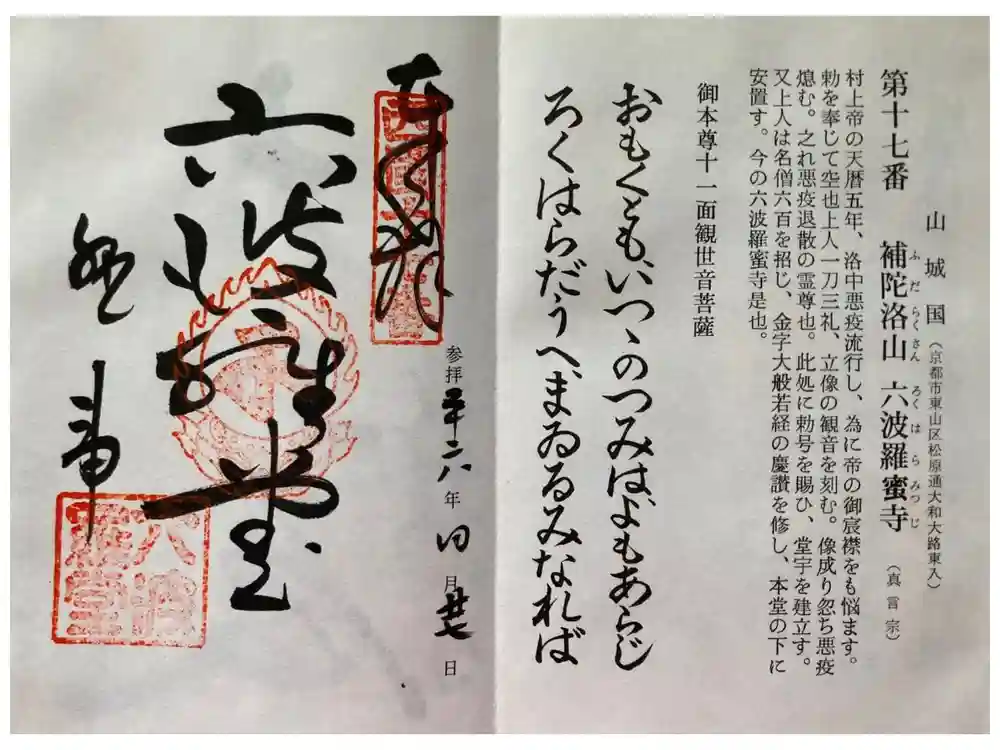 山城国（京都市東山区松原通大和大路東入）
第十七番 補陀洛山 六波羅蜜寺（真言宗）
ふだらくさん ろくはらみつじ
村上帝の天暦五年、洛中悪疫流行し、為に帝の御宸襟をも悩ます。
勅を奉じて空也上人一刀三礼、立像の観音を刻む。像成り忽ち悪疫
熄む。之れ悪疫退散の霊尊也。此処に勅号を賜ひ、堂宇を建立す。
又上人は名僧六百を招じ、金字大般若経の慶讃を修し、本堂の下に
安置す。今の六波羅蜜寺是也。
御本尊十一面観世音菩薩
おもくとも、いつゝのつみは、よもあらじ
ろくはらだうへまゐるみなれば
奉拝
参拝 平二六年 四月廿七日
六波羅堂
六波羅堂